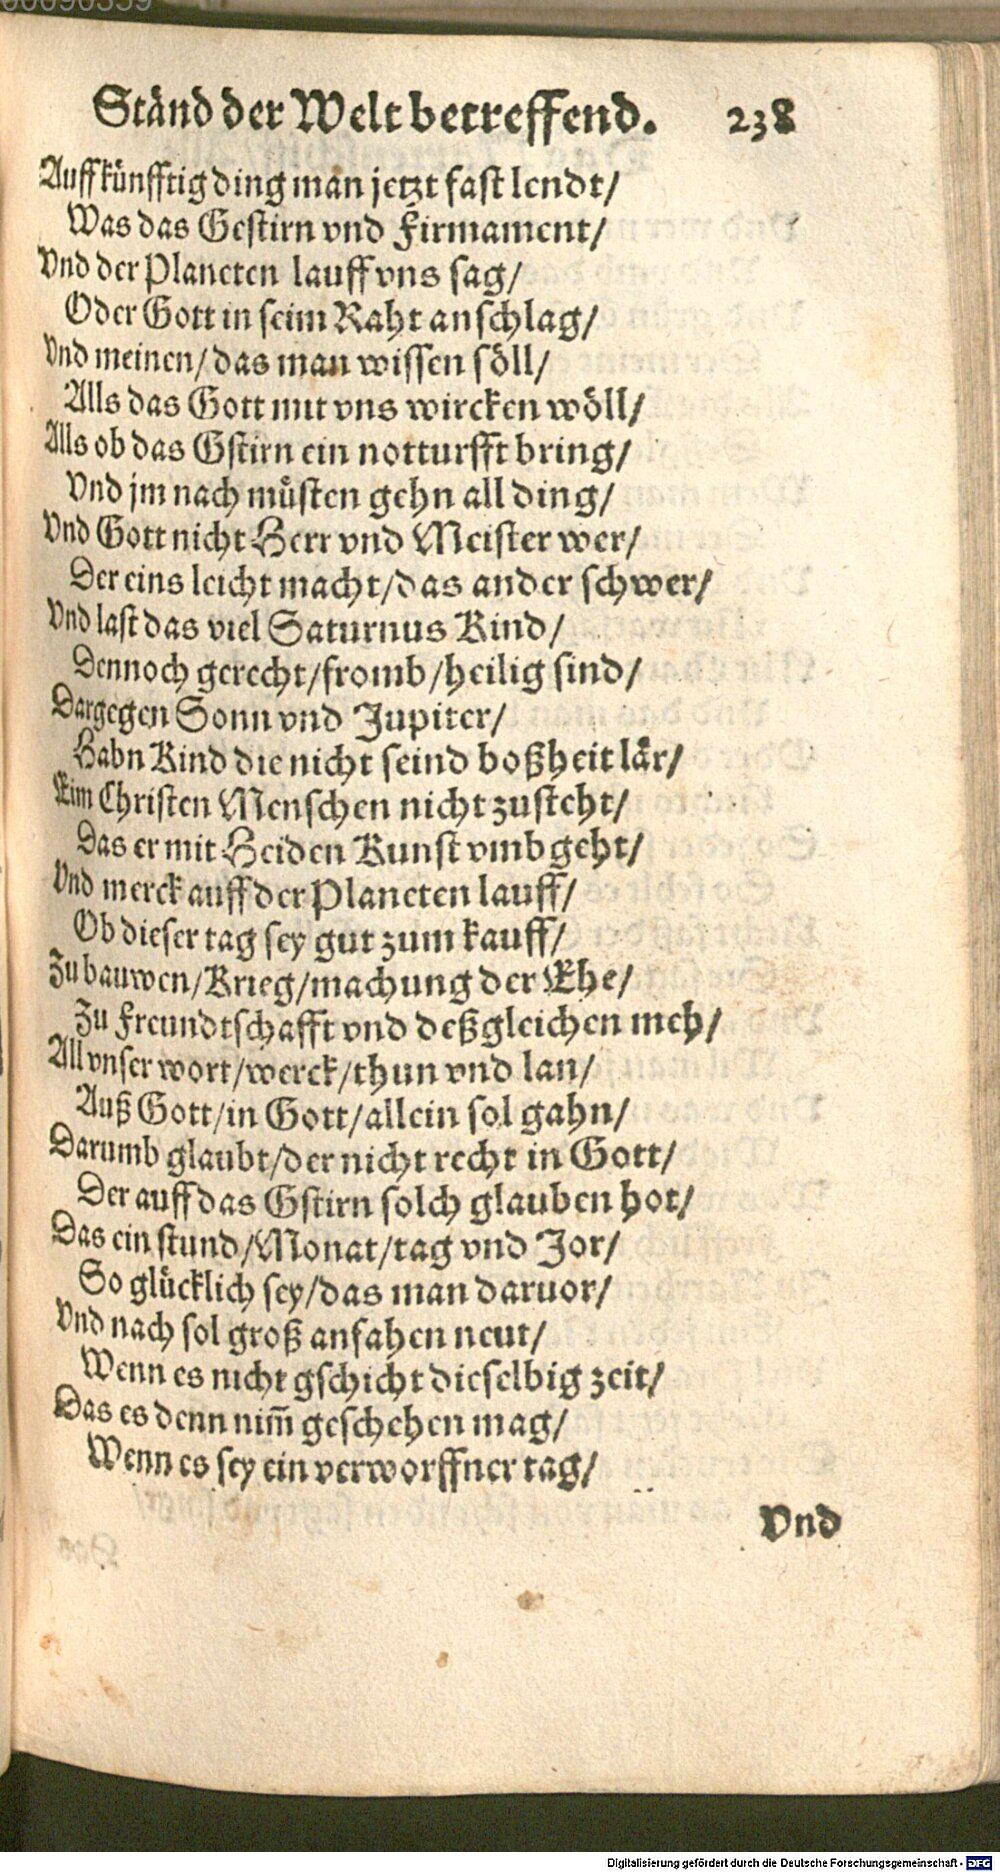 00090359
Ständ der Welt betreffend. 238
Auff künfftig ding man jetzt fast lendt/
Was das Gestirn vnd Firmament/
Vnd der Planeten lauff vns sag/
Oder Gott in seim Raht anschlag/
Vnd meinen/das man wissen söll/
Alls das Gott mit vns wircken wöll/
Alls ob das Gstirn ein notturfft bring/
Vnd jm nach müsten gehn all ding/
Vnd Gott nicht Herr vnd Meister wer/
Der eins leicht macht/das ander schwer/
Vnd last das viel Saturnus Kind/
Dennoch gerecht/fromb/heilig sind/
Dargegen Sonn vnd Jupiter/
Habn Kind die nicht seind boßheit lär/
Eim Christen Menschen nicht zusteht/
Das er mit Heiden Kunst vmbgeht/
Vnd merck auff der Planeten lauff/
Ob dieser tag sey gut zum kauff/
Zu bauwen/Krieg/machung der Ehe/
Zu Freundtschafft vnd deßgleichen meh/
All vnser wort/werck/thun vnd lan/
Auß Gott/in Gott/allein sol gahn/
Darumb glaubt/der nicht recht in Gott/
Der auff das Gstirn solch glauben hot/
Das ein stund/Monat/tag vnd Jor/
So glücklich sey/das man daruor/
Vnd nach sol groß anfahen neut/
Wenn es nicht gschicht dieselbig zeit/
Das es denn nim̄ geschehen mag/
Wenn es sey ein verworffner tag/
Vnd
Digitalisierung gefördert durch die Deutsche Forschungsgemeinschaft - DFG